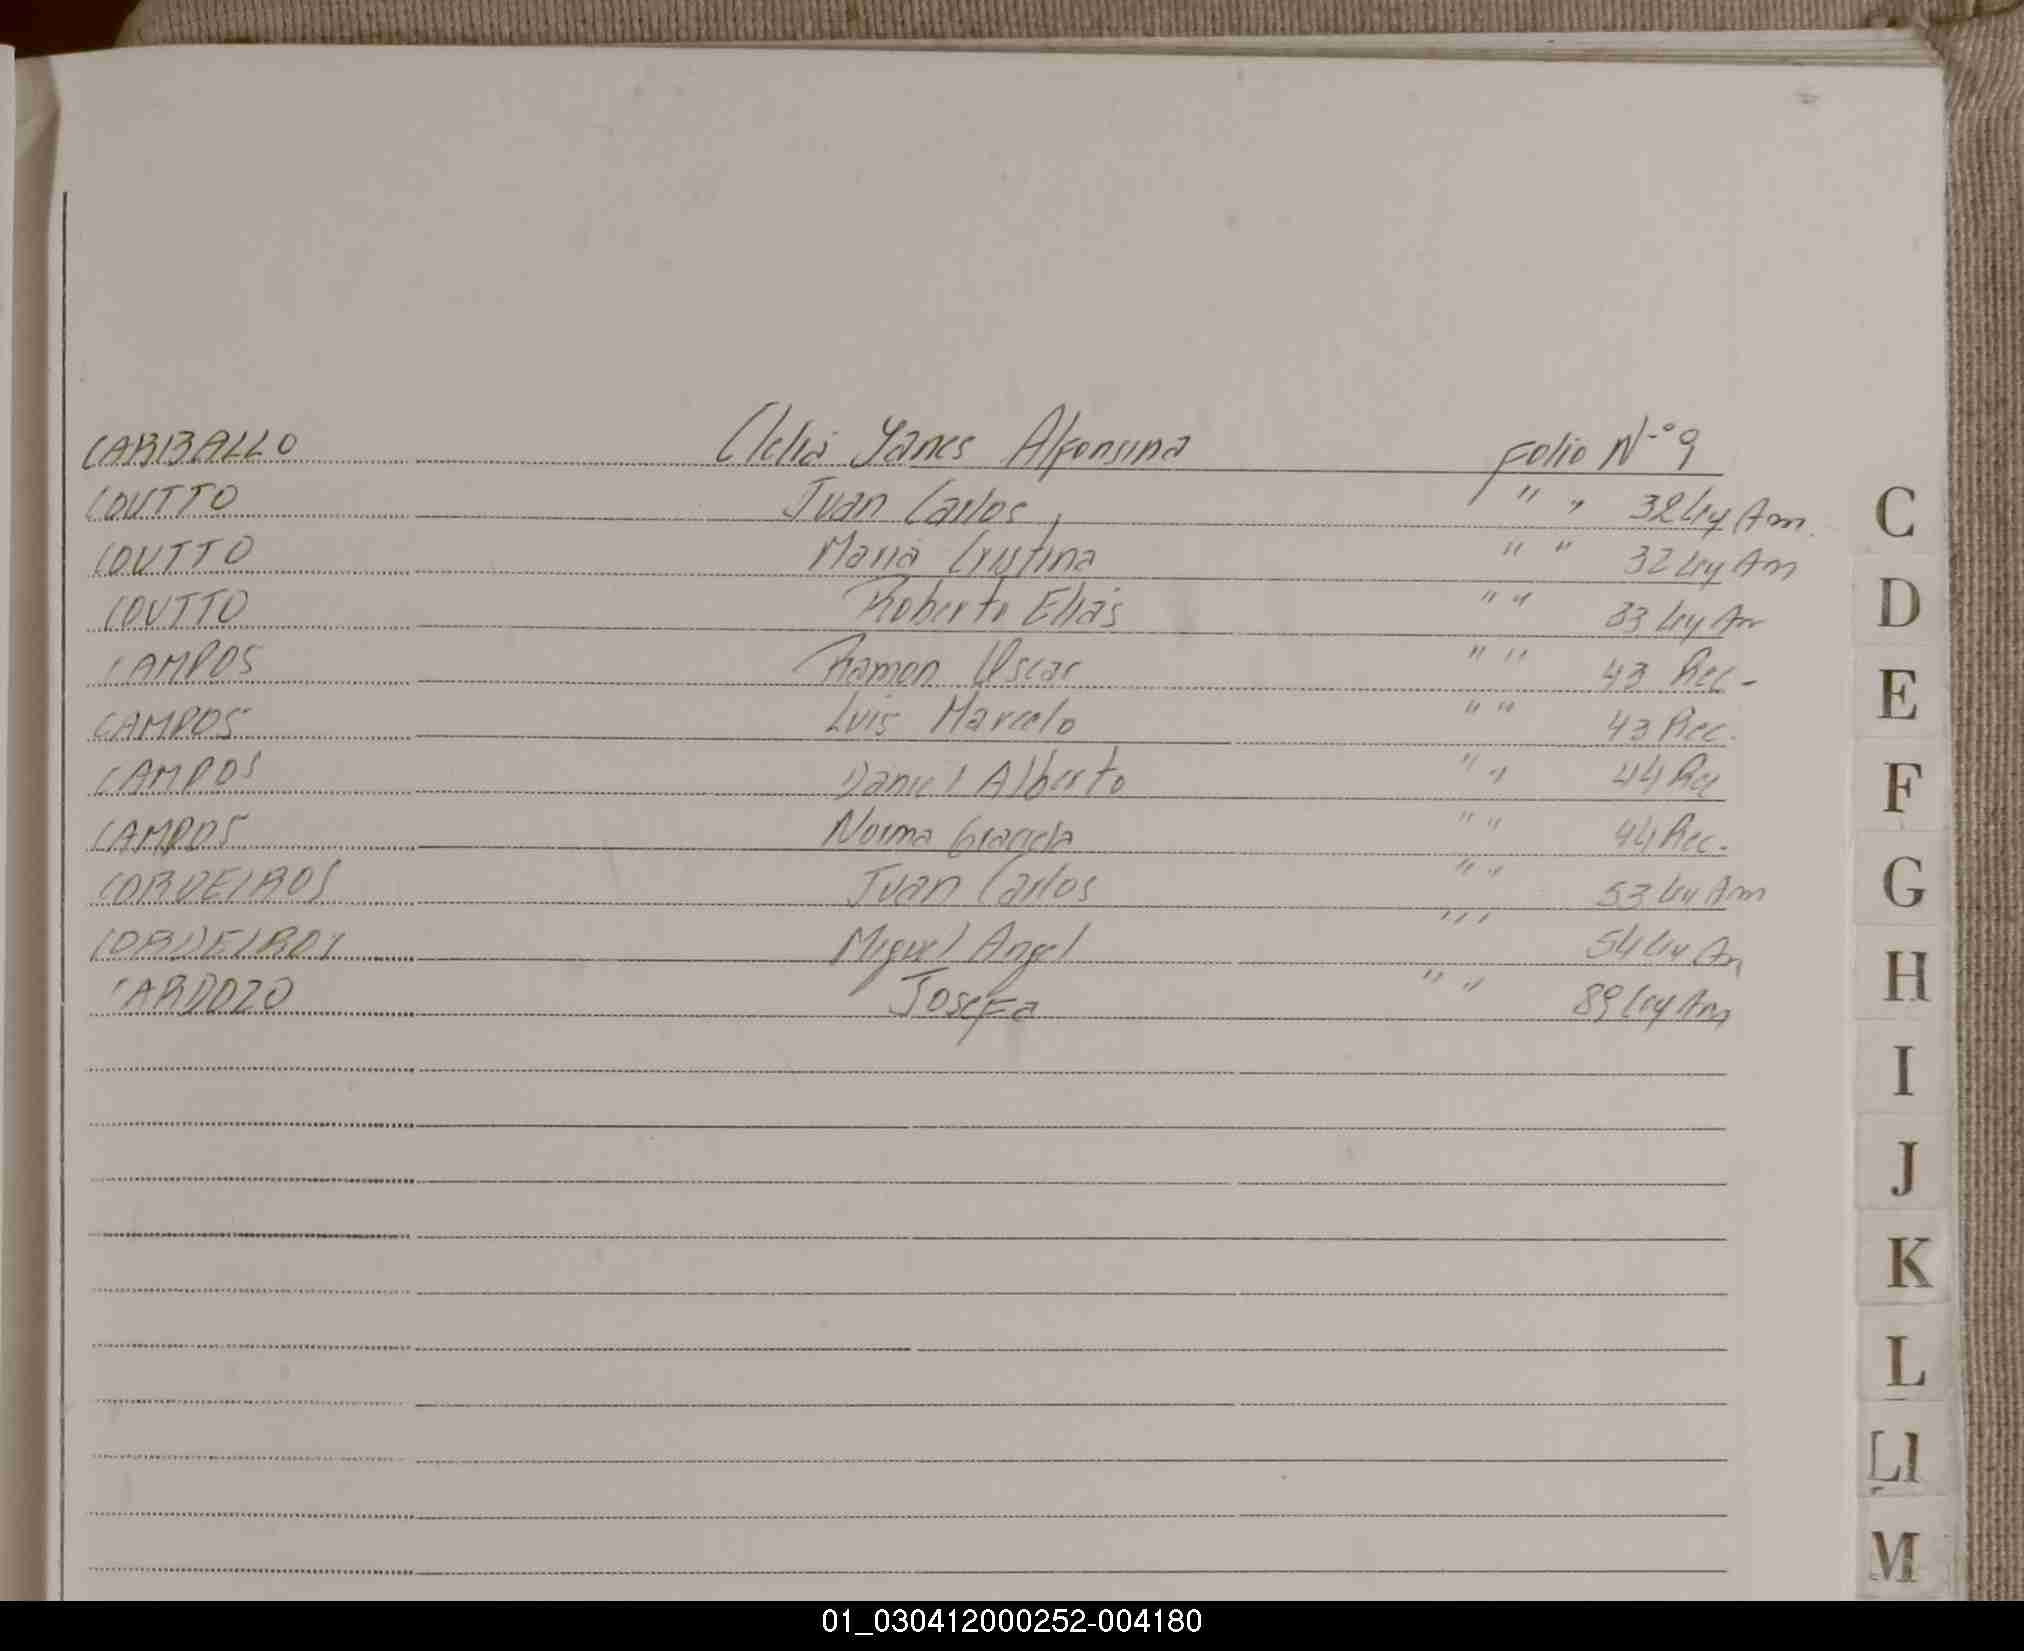 CARBALLO Clelia Yanes Alfonsina Folio N-° 9
COUTTO Juan Carlos " " 32 Ley Am.
COUTTO Maria Cristina " " 32 Ley Am
COUTTO Roberto Elias " " 33 Ley Am
CAMPOS Ramon Oscar " " 43 Rec -
CAMPOS Luis Marcelo " " 43 Rec.
CAMPOS Daniel Alberto " " 44 Rec
CAMPOS Norma Graciela " " 44 Rec.
CORDEIROS Juan Carlos " " 53 Ley Am
CORDEIROS Miguel Angel " " 54 Ley Am
CARDOZO Josefa " " 89 Ley Am
C
D
E
F
G
H
I
J
K
L
Ll
M
01_030412000252-004180